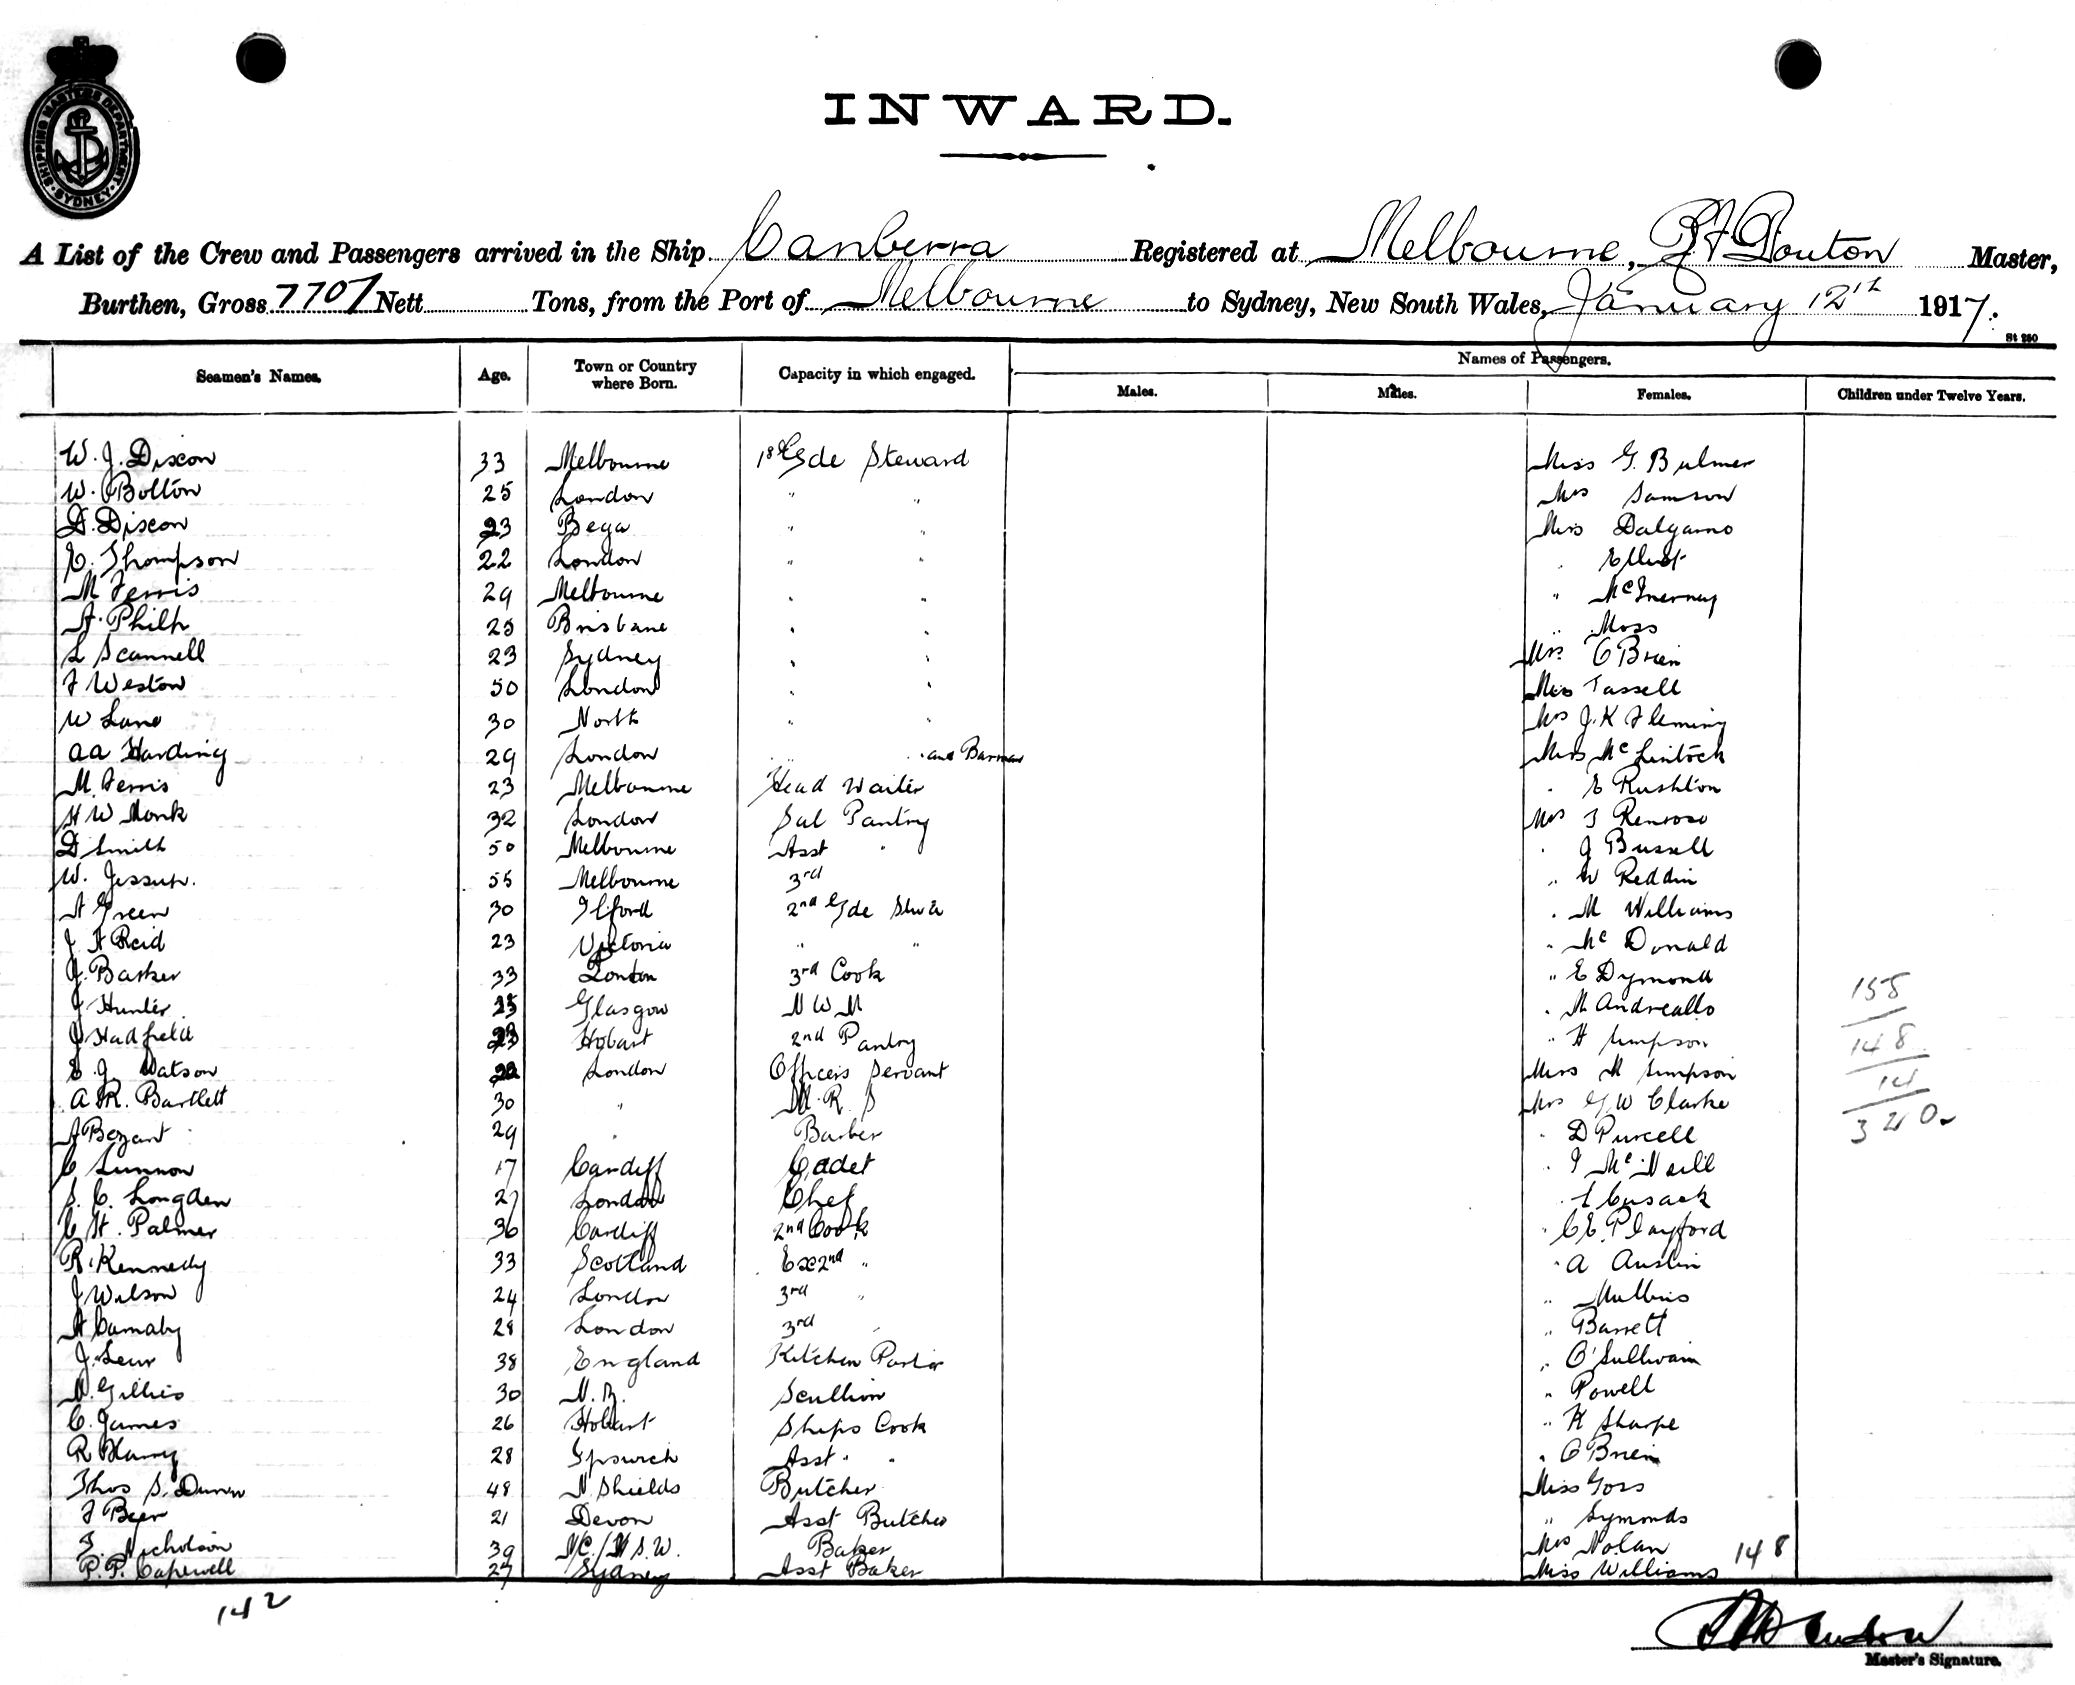 SHIPPING MASTERS DEPARTMENT SYDNEY
INWARD.
A List of the Crew and Passengers arrived in the Ship Canberra Registered at Melbourne, Master,
Burthen, Gross 7707 Nett Tons, from the Port of Melbourne to Sydney, New South Wales, January 12th 1917.
St 250
Seamen's Names. Age. Town or Country where Born. Capacity in which engaged. Names of Passengers.
Males. Males. Females. Children under Twelve Years.
W. J. Dixon 33 Melbourne 1st Gde Steward Miss G. Bulmer
W. Bolton 25 London " " Mrs Samson
D. Dixon 23 Bega " " Miss Dalgarno
E. Thompson 22 London " "
M Ferris 29 Melbourne " " " McInerney
A. Philp 25 Brisbane " " " Moss
L Scannell 23 Sydney " " Mrs O'Brien
F Weston 50 London " " Miss Tassell
W Lane 30 North " " Mrs J. K Fleming
AA Harding 29 London " " and Barman Miss McLintock
M. Ferris 23 Melbourne Head Waiter " E Rushton
H W Monk 32 London Sal Pantry Mrs Penrose
D Smith 50 Melbourne Asst " " J Bussell
W. Jessup. 55 Melbourne 3rd " W Reddin
A Green 30 Ilford 2nd Gde " M Williams
J H Reid 23 Victoria " " " McDonald
J. Barker 33 London 3rd Cook " E Dymond
J Hunter 25 Glasgow N W M " M
J Hadfield Hobart 2nd Pantry " H Simpson
E. J. Watson London Officers Servant Miss M Simpson
A R. Bartlett 30 " M. R S Mrs G W Clarke
A Bezant 29 " Barber " D Purcell
C 17 Cardiff Cadet " McNeill
S. C. Longden 27 London Chef " L Cusack
C H. Palmer 36 Cardiff 2nd Cook " C E. Playford
R. Kennedy 33 Scotland Ex 2nd " " A Austin
J Wilson 24 London 3rd " " Mullins
A Carnaby 28 London 3rd " " Barrett
J. 38 England Kitchen Porter " O'Sullivan
N. Gillies 30 N. Z. Scullion " Powell
C. James 26 Hobart Ships Cook " K Sharpe
R Harry 28 Ipswich Asst " " " O'Brien
Thos S. Dunn 48 N. Shields Butcher Miss Goss
F Beer 21 Devon Asst Butcher " Symonds
Nicholson 39 N/C/N.S.W. Baker Mrs Nolan 148
P. P. Capewell 27 Sydney Asst Baker Miss Williams
158
148
14
320
142
Master's Signature.